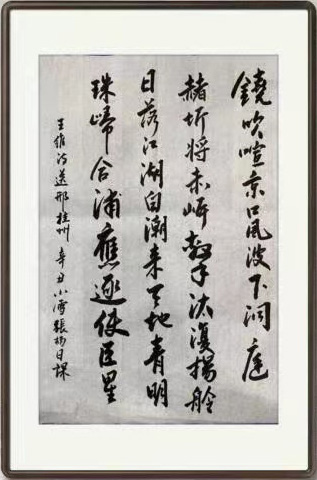 鐃吹喧京口風波下洞庭
赭圻将赤岸擊汰復揚舲
日落江湖白潮来天地青明
珠歸合浦應逐使臣星
王維詩送邢桂州 辛丑小雪張日課